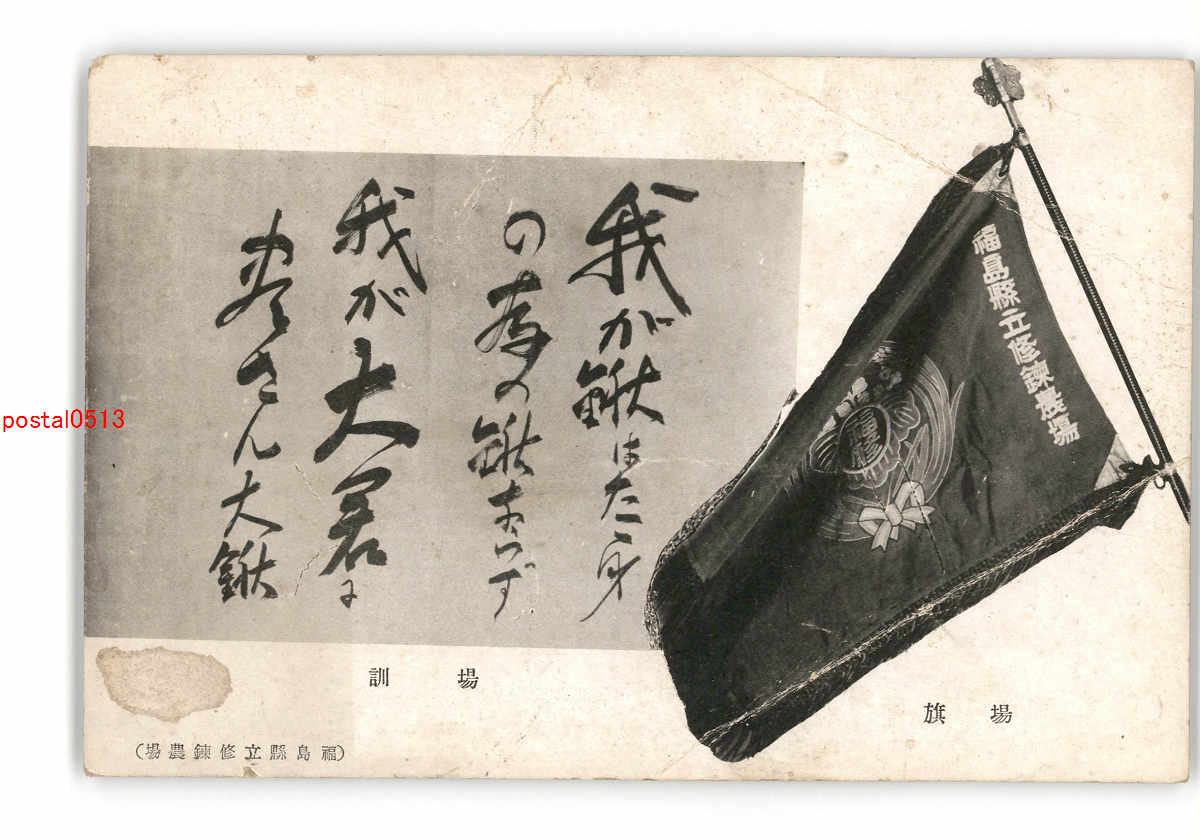 福島縣立修錬農場
我が鍬はたゞ身
の為の鍬ならず
我が大君に
盡さん大鍬
場訓
場旗
(福島縣立修錬農場)
postal0513